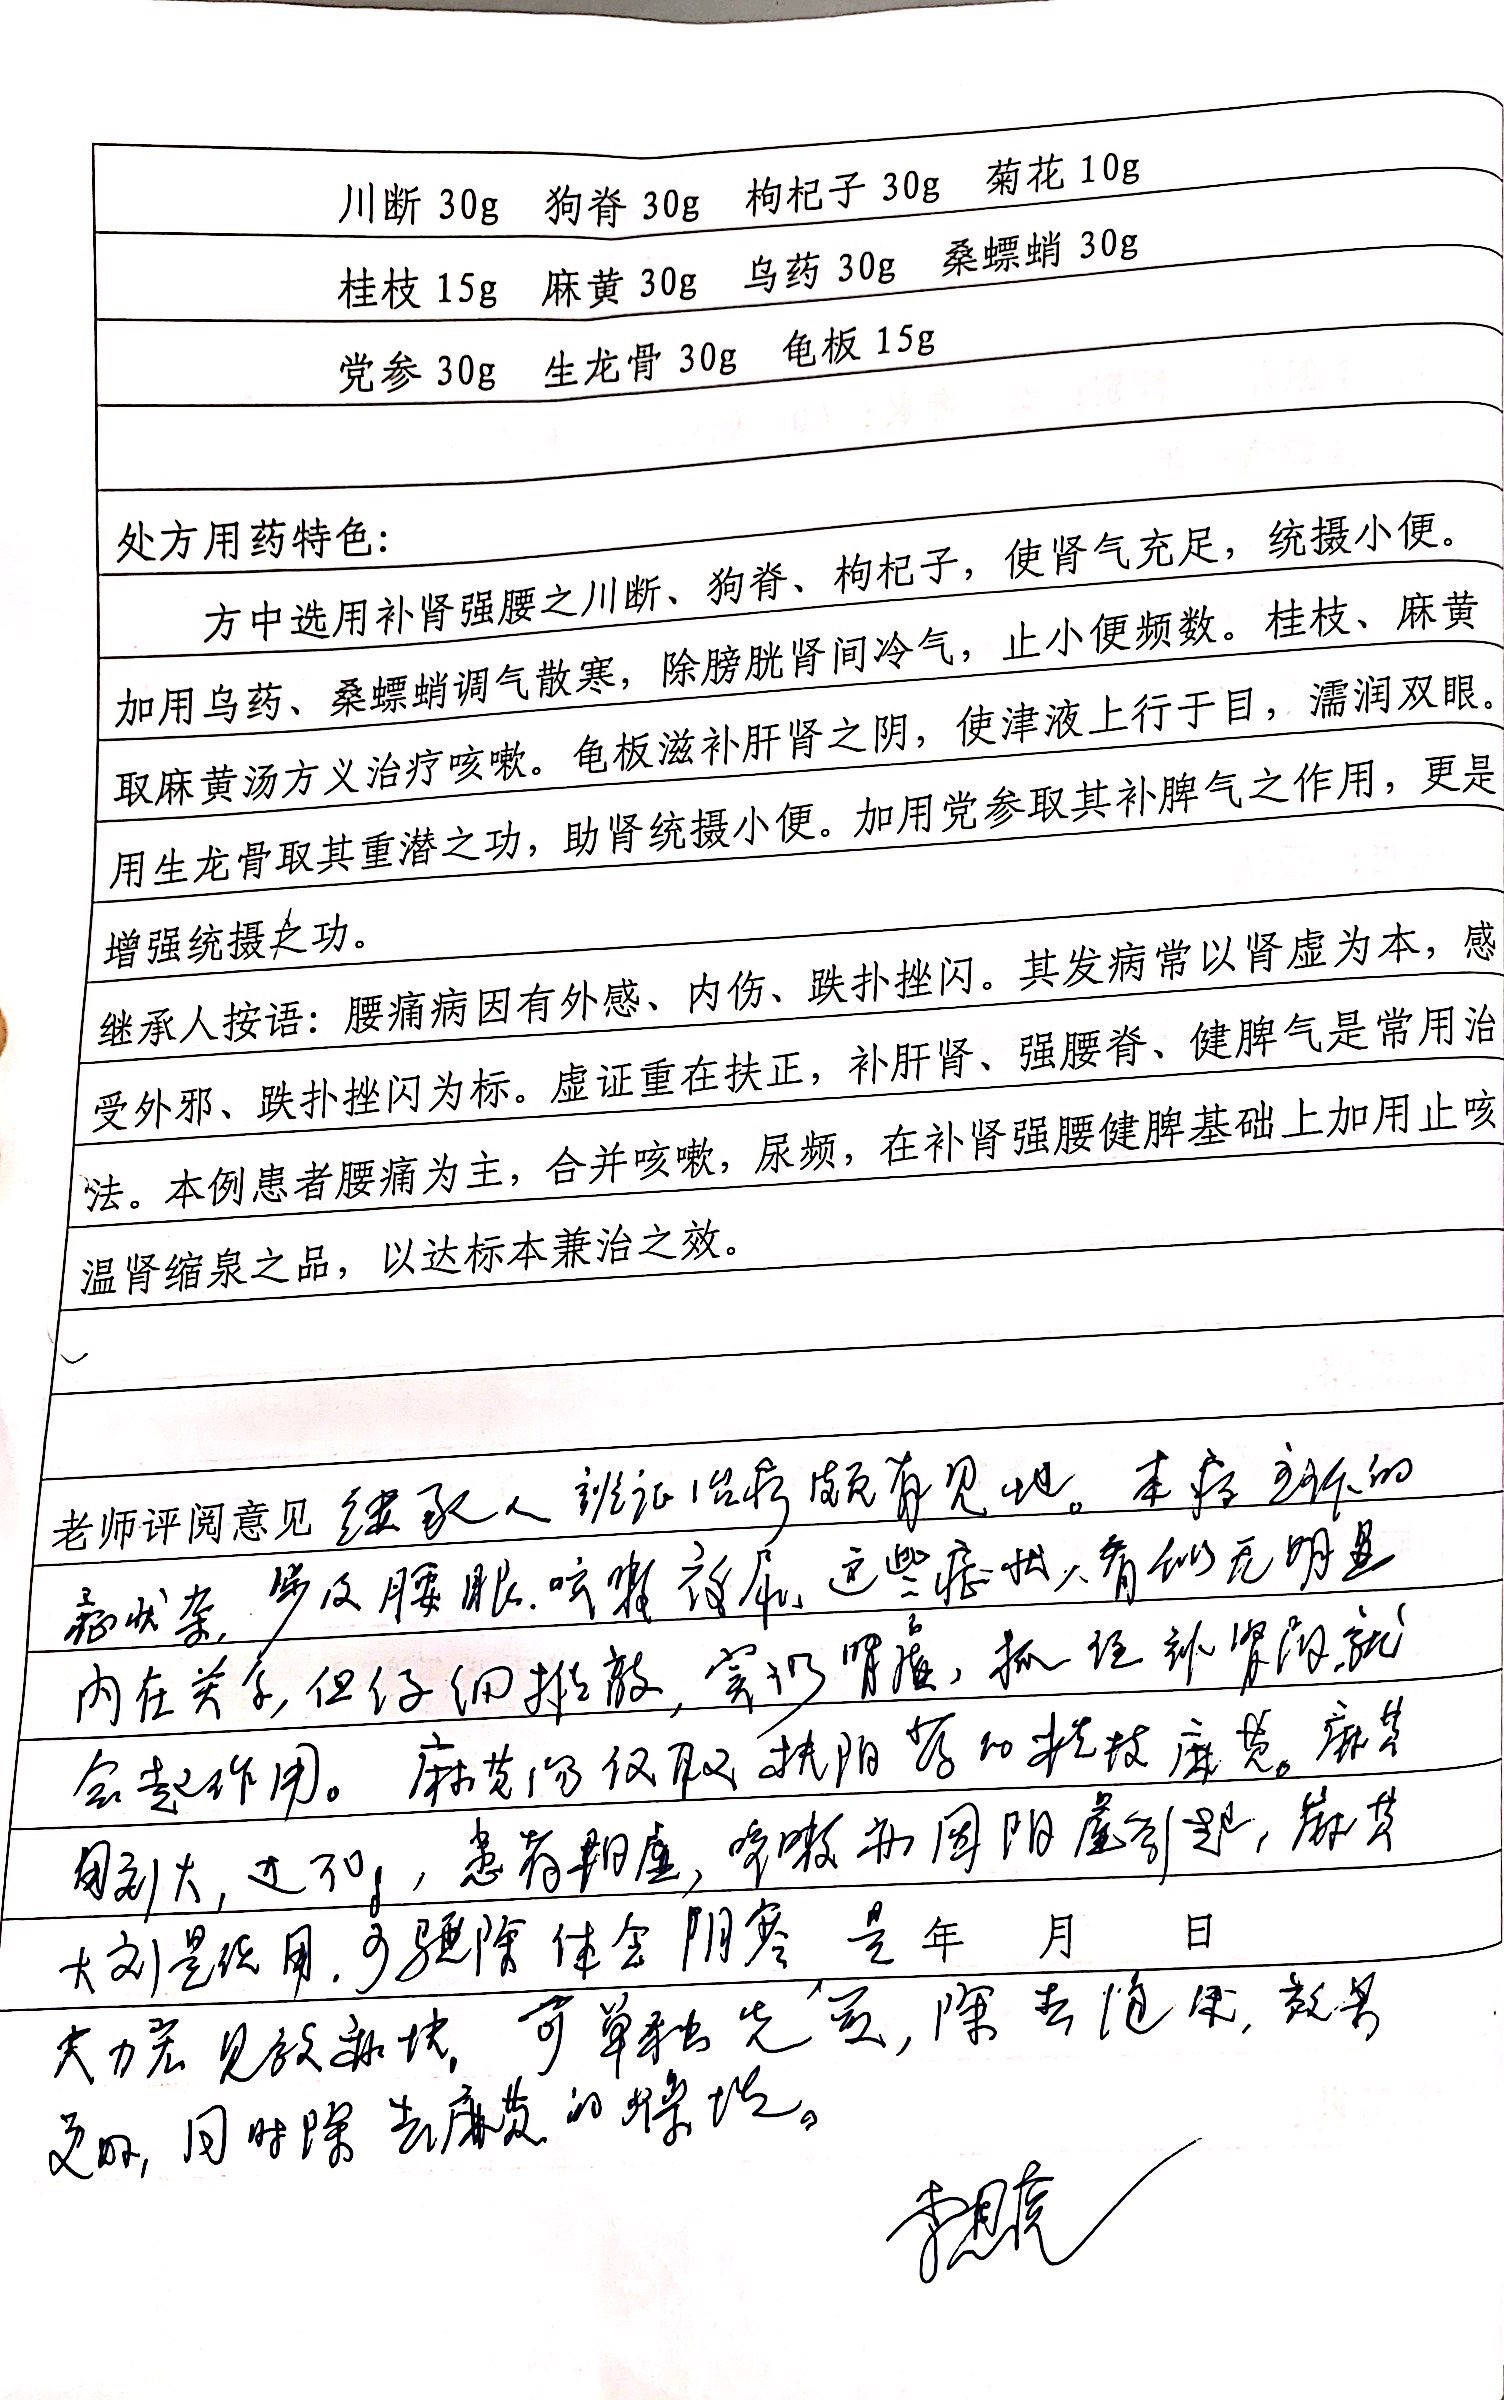 川断 30g 狗脊 30g 枸杞子 30g 菊花 10g
桂枝 15g 麻黄 30g 乌药 30g 桑螵蛸 30g
党参 30g 生龙骨 30g 龟板 15g
处方用药特色:
方中选用补肾强腰之川断、狗脊、枸杞子，使肾气充足，统摄小便。
加用乌药、桑螵蛸调气散寒，除膀胱肾间冷气，止小便频数。桂枝、麻黄
取麻黄汤方义治疗咳嗽。龟板滋补肝肾之阴，使津液上行于目，濡润双眼。
用生龙骨取其重潜之功，助肾统摄小便。加用党参取其补脾气之作用，更是
增强统摄之功。
继承人按语：腰痛病因有外感、内伤、跌扑挫闪。其发病常以肾虚为本，感
受外邪、跌扑挫闪为标。虚证重在扶正，补肝肾、强腰脊、健脾气是常用治
法。本例患者腰痛为主，合并咳嗽，尿频，在补肾强腰健脾基础上加用止咳
温肾缩泉之品，以达标本兼治之效。
老师评阅意见 继承人 辨证治疗颇有见地。本病 的
症状杂，涉及腰眼.咳嗽 夜尿、这些症状 看似无明显
内在关系，但仔细推敲，实为肾虚，抓住补肾 就
会起作用。麻黄汤仅取扶阳药的桂枝麻黄。麻黄
用剂大，达30g，患者阳虚，咳嗽亦因阳虚引起，麻黄
大剂是 用.可驱除体会阴寒 是 年 月 日
夫力宏见效 快。可单独先煎，除去泡沫，效果
更好，同时除去麻黄的燥性。